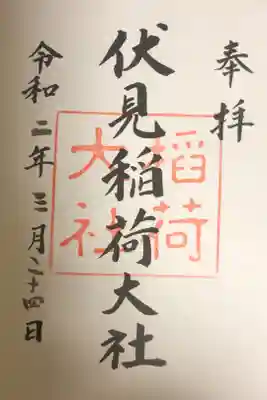 奉拝
伏見稲荷大社
稲荷
大社
令和二年三月二十四日